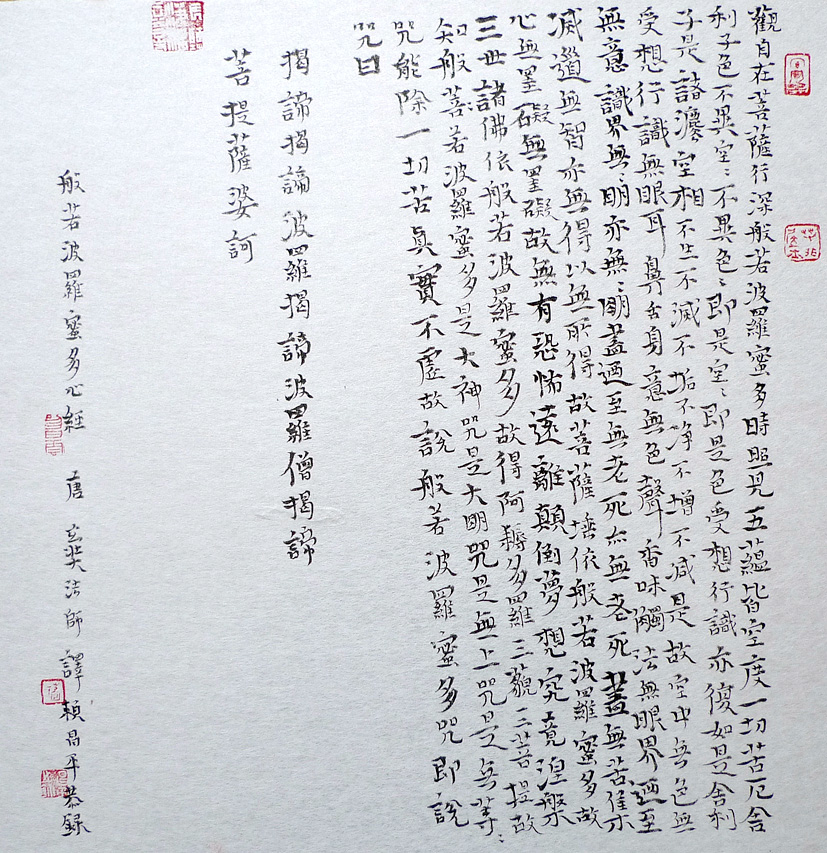 觀自在菩薩行深般若波羅蜜多時照見五蘊皆空度一切苦厄舍
利子色不異空〻不異色〻即是空〻即是色受想行識亦復如是舍利
子是諸灋空相不生不滅不垢不净不增不減是故空中無色無
受想行識無眼耳鼻舌身意無色聲香味觸法無眼界迺至
無意識界無〻明亦無〻明盡迺至無老死亦無老死盡無苦集
滅道無智亦無得以無所得故菩薩埵依般若波羅蜜多故
心無罣礙無罣礙故無有恐怖遠離顛倒夢想究竟涅槃
三世諸佛依般若波羅蜜多故得阿耨多羅三藐三菩提故
知般菩若波羅蜜多是大神咒是大明咒是無上咒是無等〻
咒能除一切苦真實不虛故說般若波羅蜜多咒即說
咒曰
揭諦揭諦波羅揭諦波羅僧揭諦
菩提薩婆訶
般若波羅蜜多心經 唐玄奘法師譯 賴昌平恭録